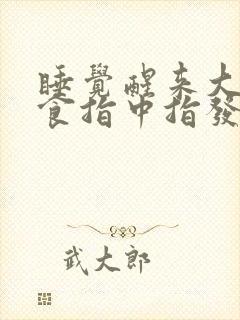 睡覺醒來大
食指中指發
武大郎